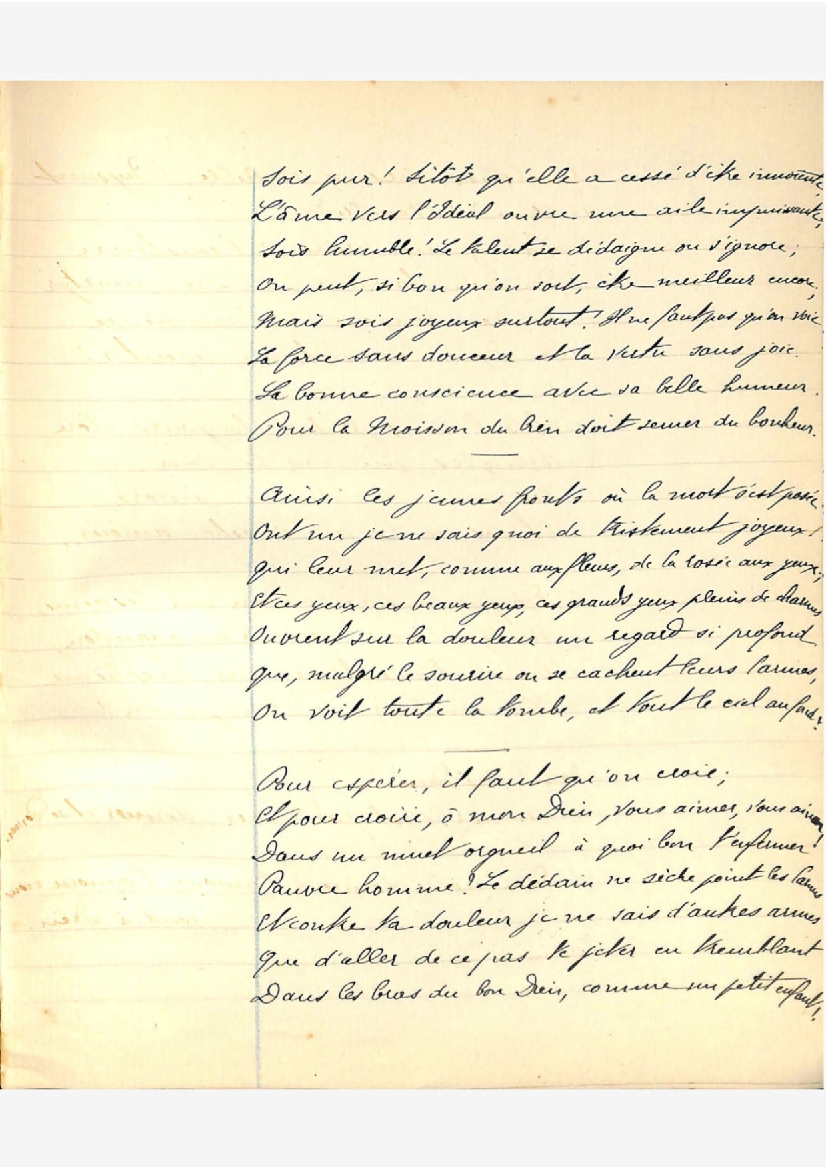 Sois pur! Sitôt qu'elle a cessé d'être innocente,
L'âme vers l'Idéal ouvre une aile impuissante;
Sois humble! Le talent se dédaigne ou s'ignore;
On peut, si bon qu'on soit, être meilleur encore,
Mais sois joyeux surtout! Il ne faut pas qu'on voie
La force sans douceur et la vertu sans joie.
La bonne conscience avec sa belle humeur.
Pour la Moisson du bien doit semer du bonheur.
Ainsi les jeunes fronts où la mort s'est posée
Ont un je ne sais quoi de tristement joyeux!
qui leur met, comme aux fleurs, de la rosée aux yeux;
Et ces yeux, ces beaux yeux, ces grands yeux pleins de charmes
Ouvrent sur la douleur un regard si profond
que, malgré le sourire ou se cachent leurs larmes,
On voit toute la tombe, et tout le ciel au fond!
Pour espérer, il faut qu'on croie;
Et pour croire, ô mon Dieu, vous aimer, vous aimer!
Dans un muet orgueil à quoi bon t'enfermer!
Pauvre homme! Le dédain ne sèche point les larmes
Et contre ta douleur je ne sais d'autres armes
que d'aller de ce pas te jeter en tremblant
Dans les bras du bon Dieu, comme un petit enfant!